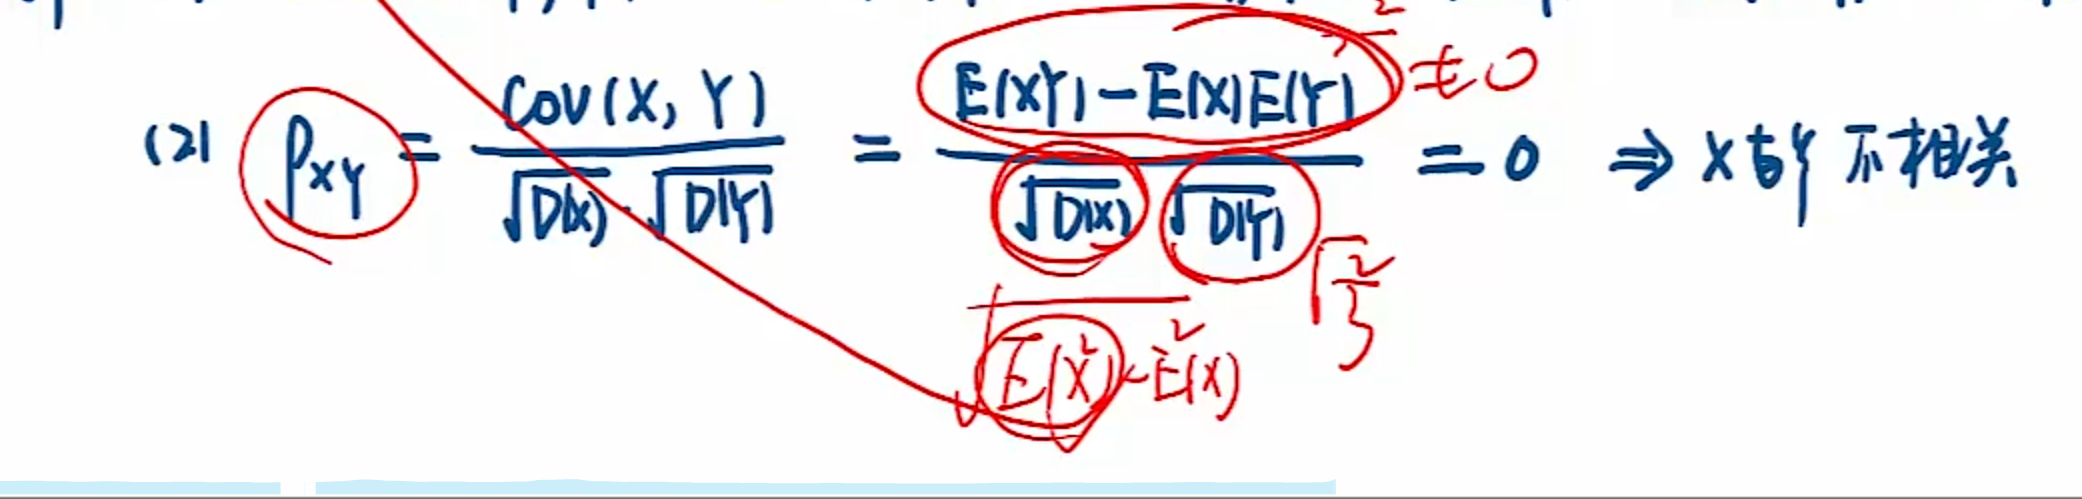 (2) ρXY = Cov(X, Y) / √D(X) · √D(Y) = E(XY) - E(X)E(Y) / √D(X) √D(Y) = 0 ⇒ X与Y 不相关
≠0
√2/3
√E(X²) - E²(X)